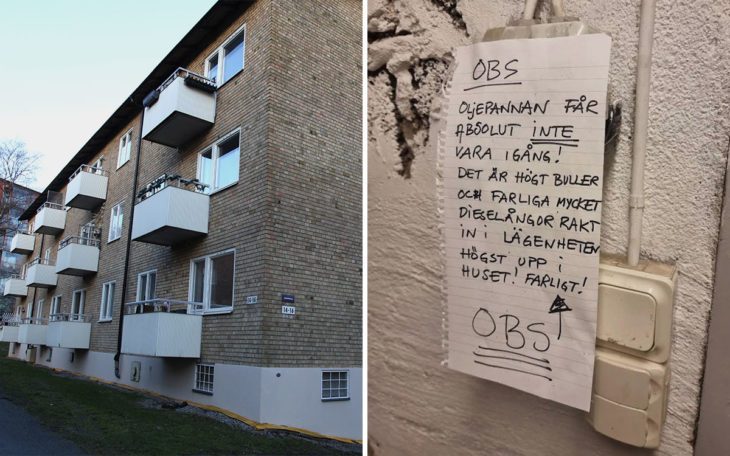 14-16
OBS
OLJEPANNAN FÅR
ABSOLUT INTE
VARA IGÅNG!
DET ÄR HÖGT BULLER
OCH FARLIGA MYCKET
DIESELÅNGOR RAKT
IN I LÄGENHETEN
HÖGST UPP I
HUSET! FARLIGT!
OBS